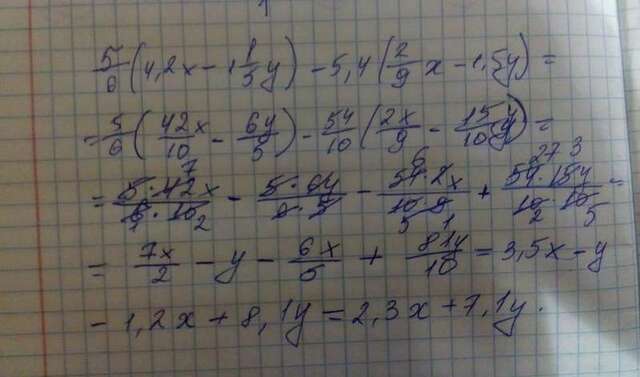 5/6(4,2x - 1 1/5y) - 5,4(2/9x - 1,5y) =
= 5/6(42x/10 - 6y/5) - 54/10(2x/9 - 15/10y) =
= 5·42x/6·10 - 5·6y/6·5 - 54·2x/10·9 + 54·15y/10·10 =
= 7x/2 - y - 6x/5 + 81y/10 = 3,5x - y
- 1,2x + 8,1y = 2,3x + 7,1y.